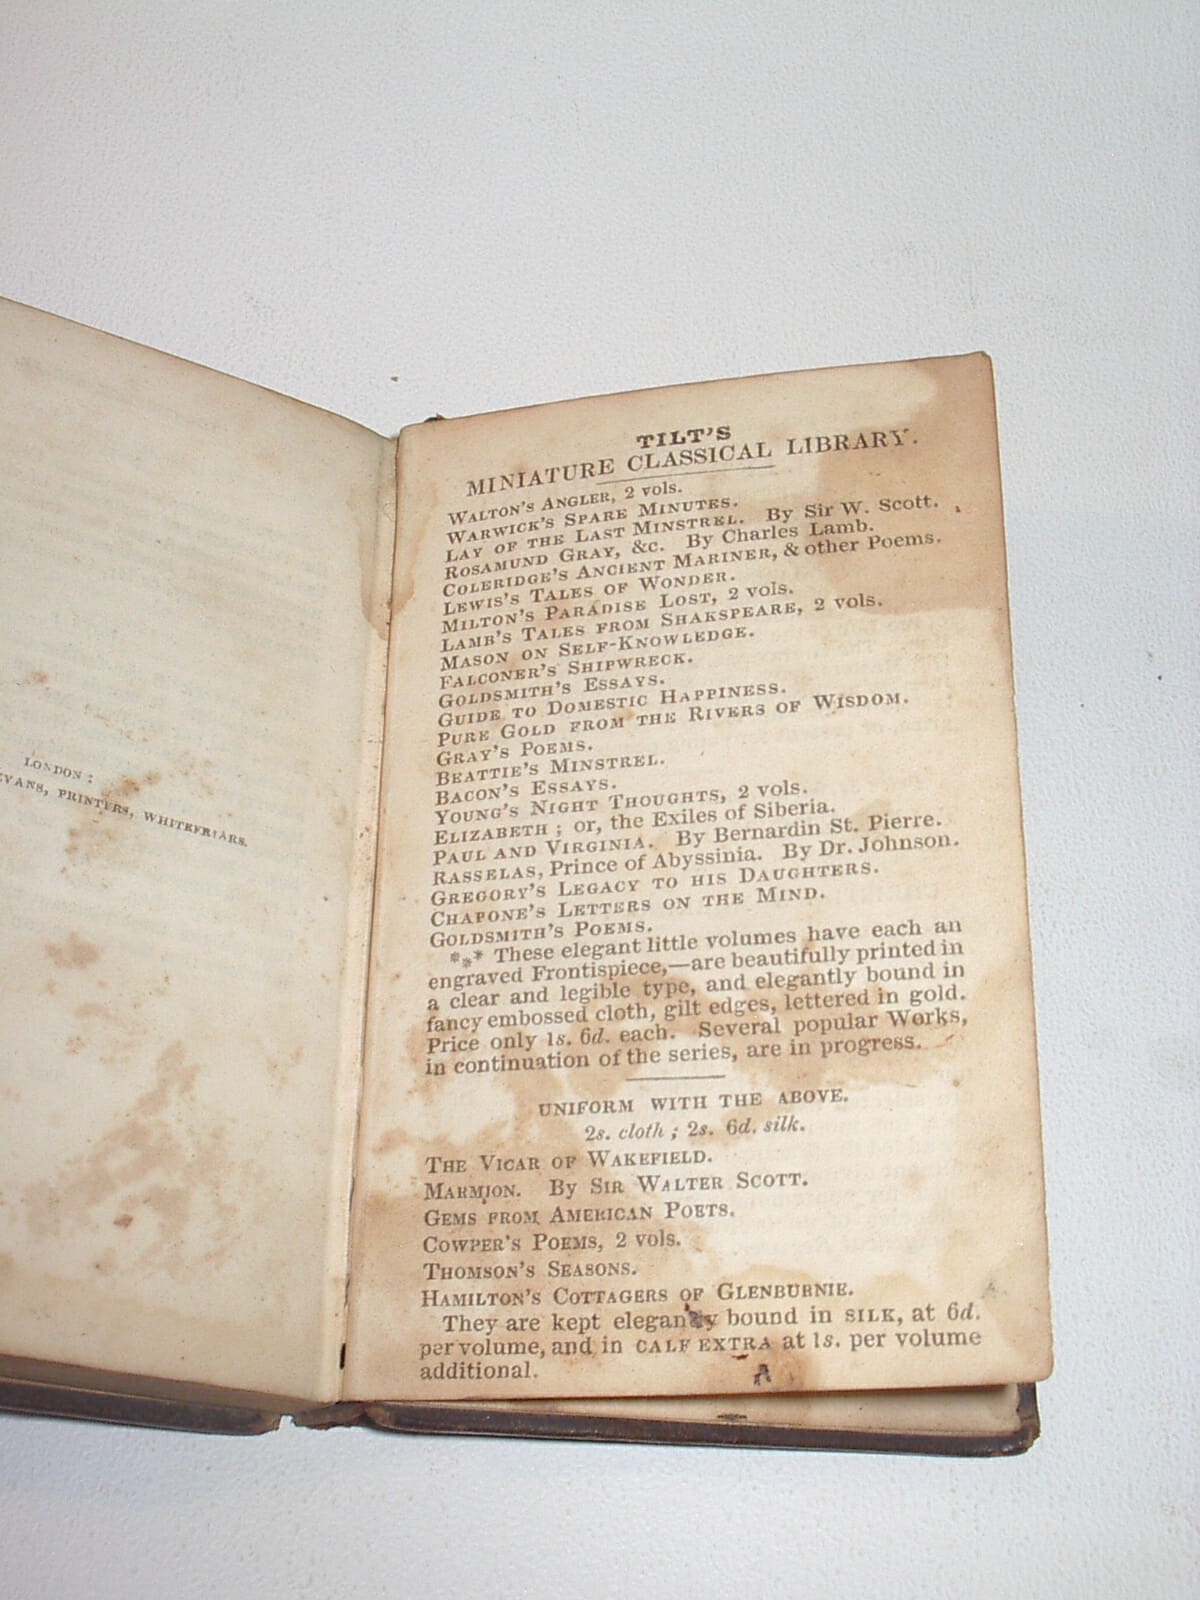 LONDON:
EVANS, PRINTERS, WHITEFRIARS.
TILT'S
MINIATURE CLASSICAL LIBRARY.
WALTON'S ANGLER, 2 vols.
WARWICK'S SPARE MINUTES.
LAY OF THE LAST MINSTREL. By Sir W. Scott.
ROSAMUND GRAY, &c. By Charles Lamb.
COLERIDGE'S ANCIENT MARINER, & other Poems.
LEWIS'S TALES OF WONDER.
MILTON'S PARADISE LOST, 2 vols.
LAMB'S TALES FROM SHAKSPEARE, 2 vols.
MASON ON SELF-KNOWLEDGE.
FALCONER'S SHIPWRECK.
GOLDSMITH'S ESSAYS.
GUIDE TO DOMESTIC HAPPINESS.
PURE GOLD FROM THE RIVERS OF WISDOM.
GRAY'S POEMS.
BEATTIE'S MINSTREL.
BACON'S ESSAYS.
YOUNG'S NIGHT THOUGHTS, 2 vols.
ELIZABETH; or, the Exiles of Siberia.
PAUL AND VIRGINIA. By Bernardin St. Pierre.
RASSELAS, Prince of Abyssinia. By Dr. Johnson.
GREGORY'S LEGACY TO HIS DAUGHTERS.
CHAPONE'S LETTERS ON THE MIND.
GOLDSMITH'S POEMS.
*** These elegant little volumes have each an
engraved Frontispiece,—are beautifully printed in
a clear and legible type, and elegantly bound in
fancy embossed cloth, gilt edges, lettered in gold.
Price only 1s. 6d. each. Several popular Works,
in continuation of the series, are in progress.
UNIFORM WITH THE ABOVE.
2s. cloth; 2s. 6d. silk.
THE VICAR OF WAKEFIELD.
MARMION. By SIR WALTER SCOTT.
GEMS FROM AMERICAN POETS.
COWPER'S POEMS, 2 vols.
THOMSON'S SEASONS.
HAMILTON'S COTTAGERS OF GLENBURNIE.
They are kept elegantly bound in SILK, at 6d.
per volume, and in CALF EXTRA at 1s. per volume
additional.